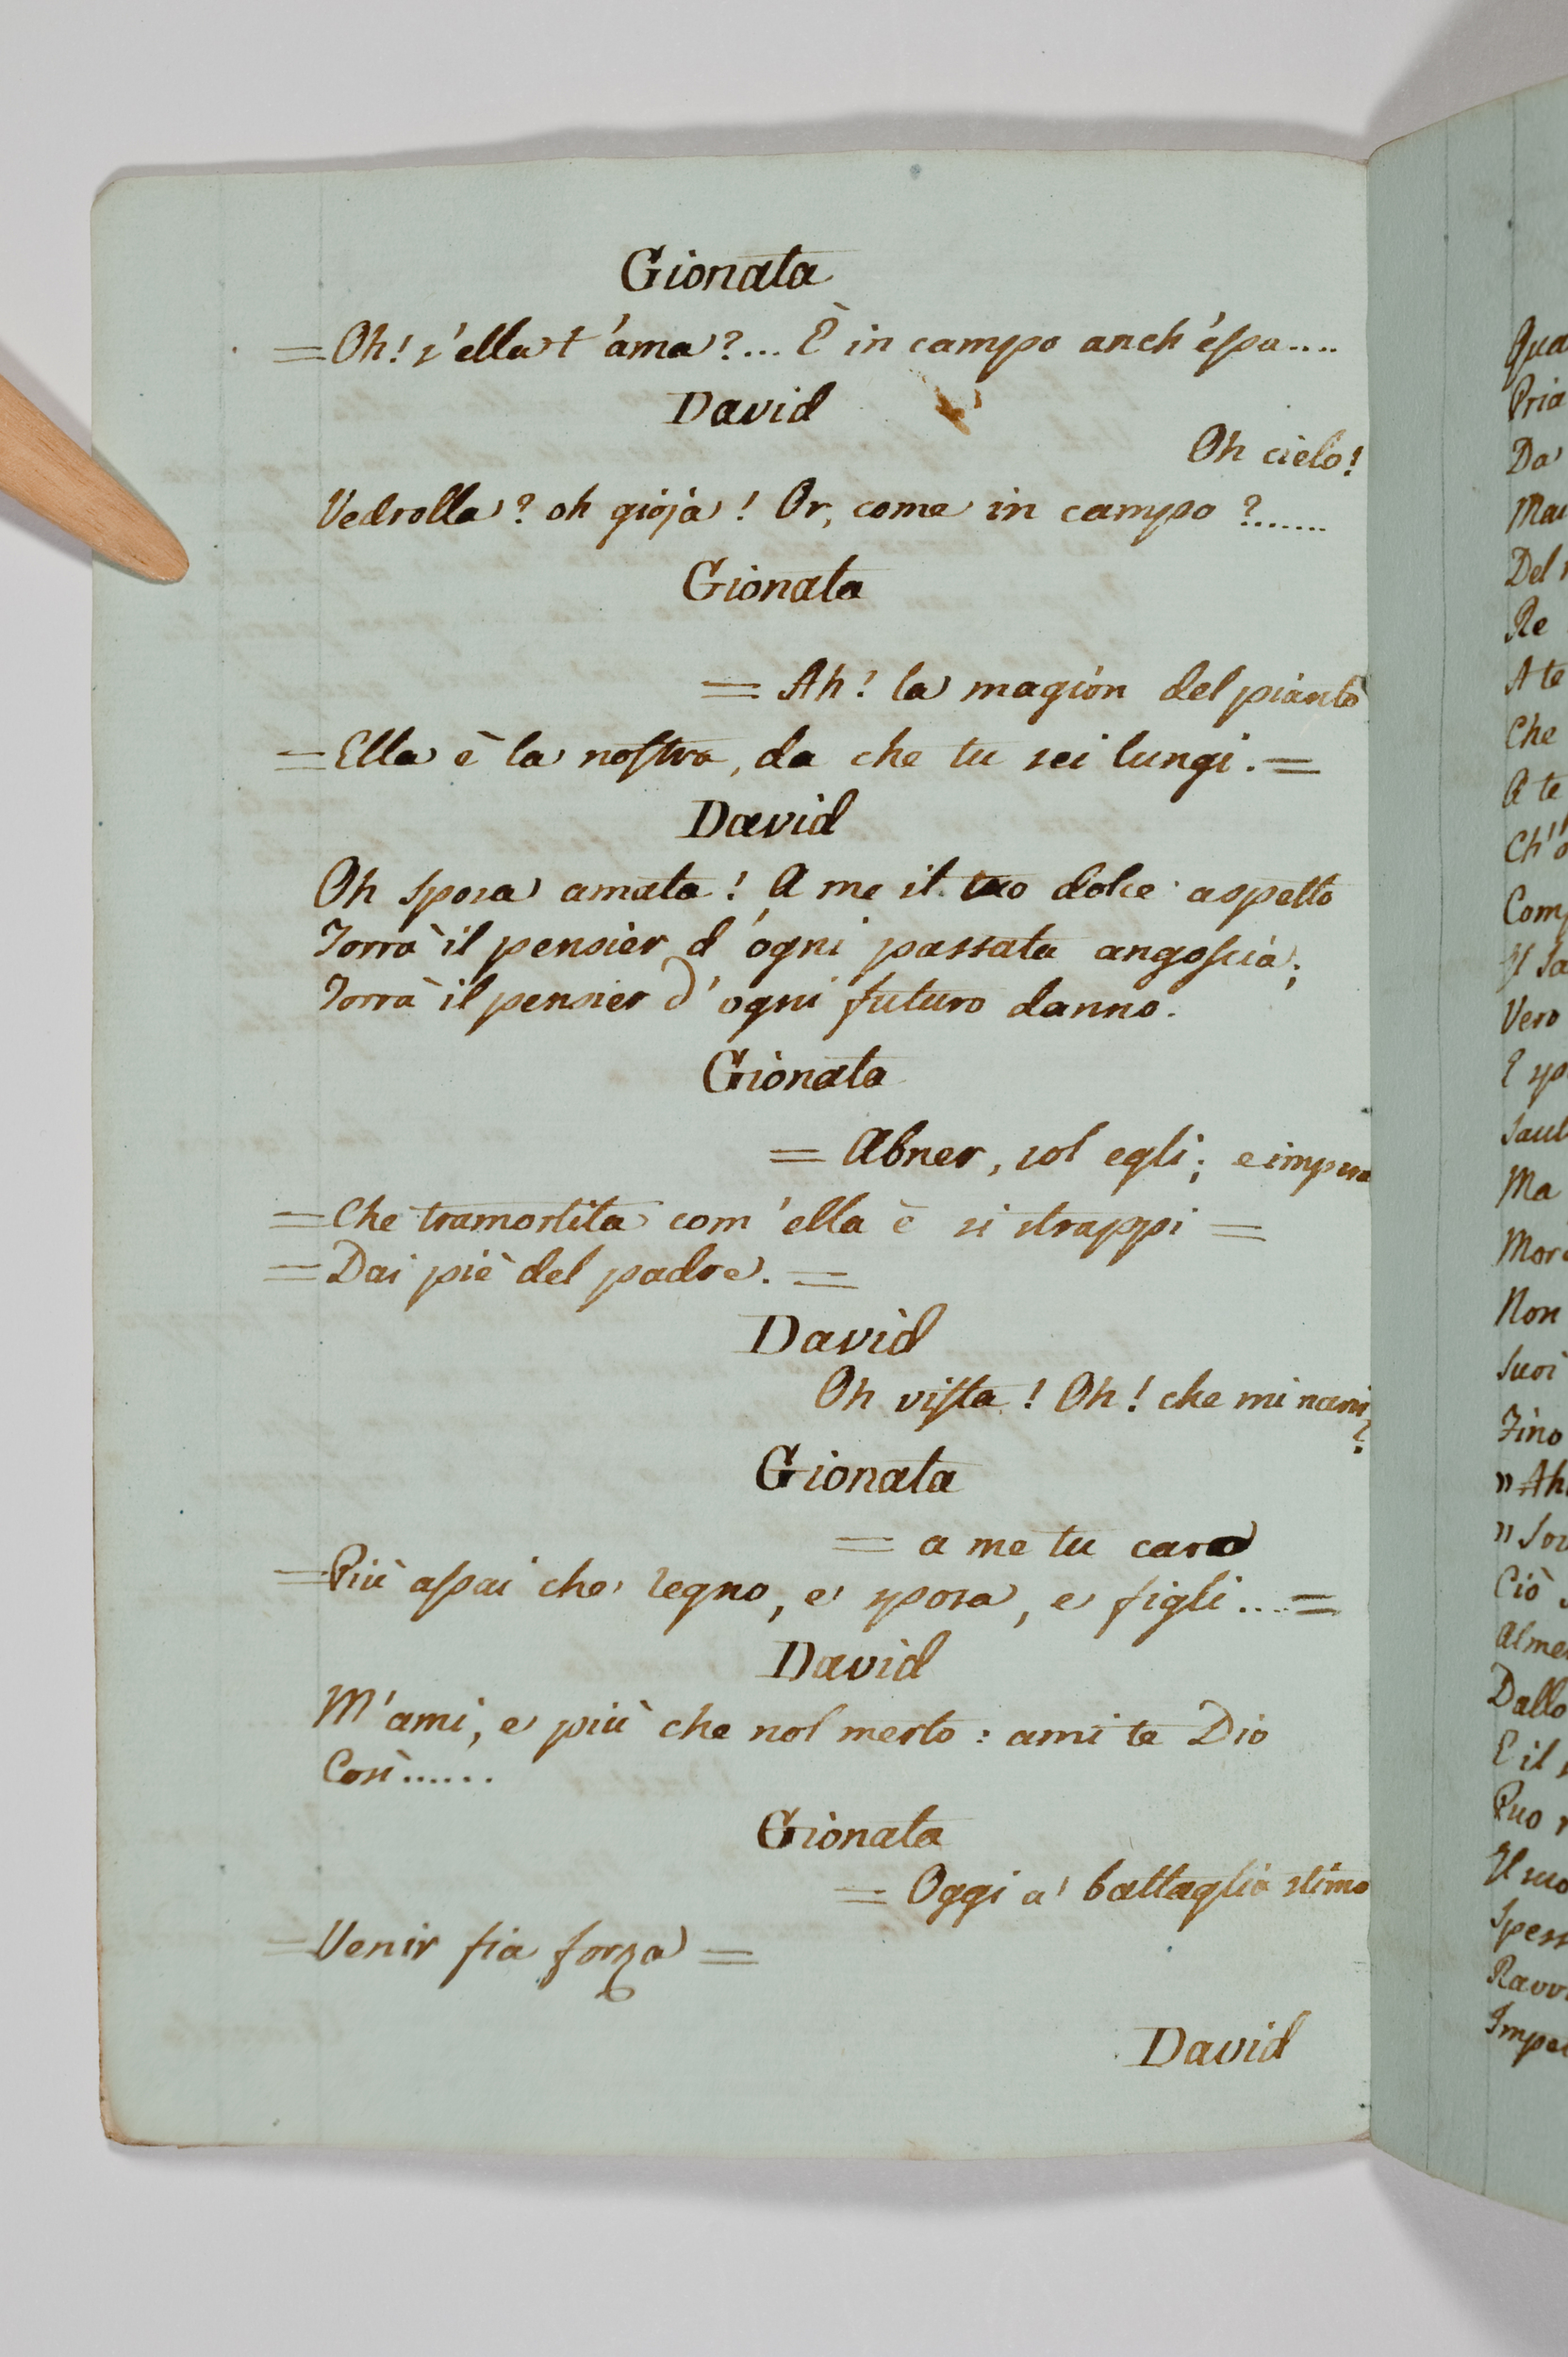 Gionata
= Oh! s'ella t'ama?... È in campo anch'essa....
David
Oh cielo!
Vedrolla? oh gioja! Or, come in campo?.......
Gionata
= Ah! la magion del pianto
= Ella è la nostra, da che tu sei lungi. =
David
Oh sposa amata! A me il tuo dolce aspetto
Torrà il pensier d'ogni passata angoscia;
Torrà il pensier d'ogni futuro danno.
Gionata
= Abner, sol egli; e impera
= Che tramortita com'ella è si strappi =
= Dai piè del padre. =
David
Oh vista! Oh! che mi narri
?
Gionata
= a me tu caro
= Più assai che regno, e sposa, e figli.... =
David
M'ami, e più che nol merto: ami te Dio
Così......
Gionata
= Oggi a battaglia stimo
= Venir fia forza =
David
Qua
Pria
Da
Mai
Del
Re
A te
Che
A te
Ch'
Com
Il
Vero
E
Saul
Ma
Non
Suoi
Fino
" Ah
"
Ciò
Dallo
E il
Può
Il suo
Spess
Ravv
Impe